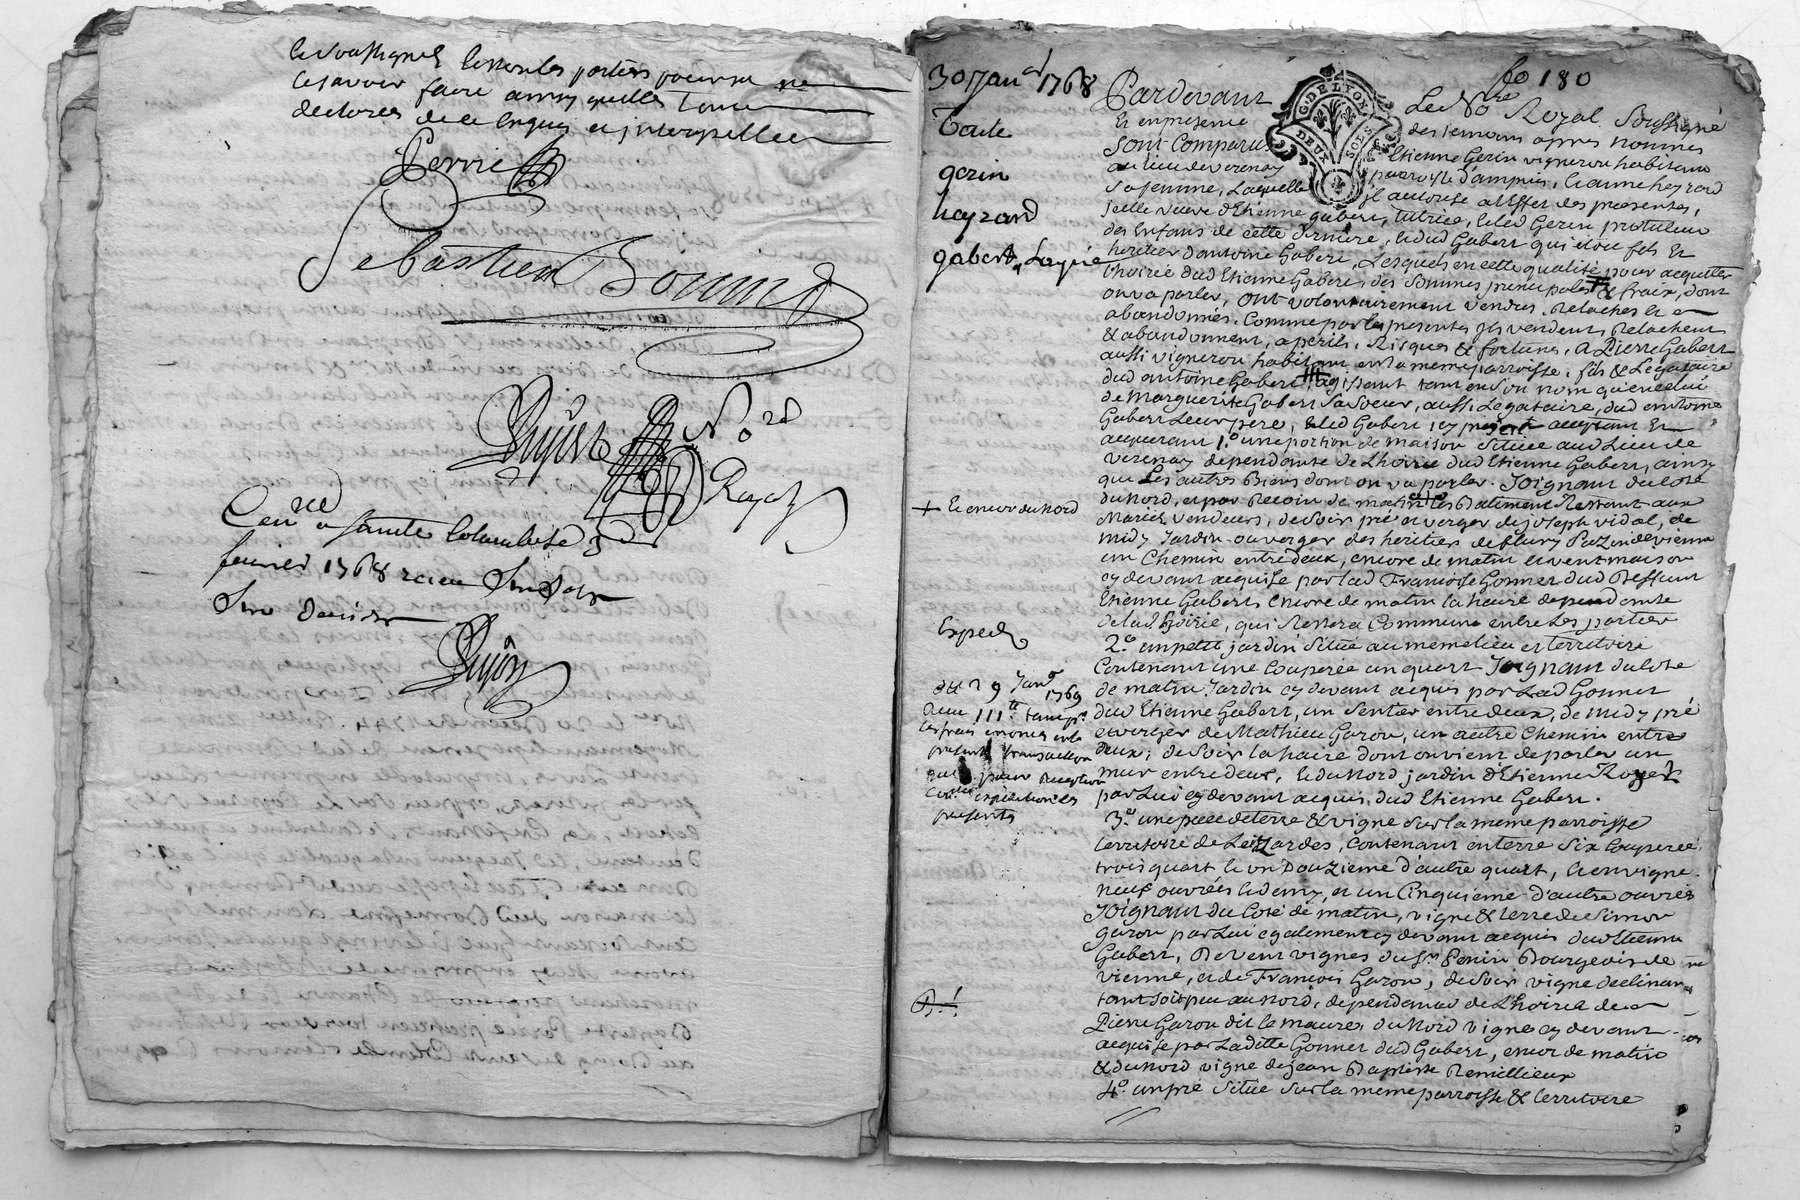 le soussignez les parties pour ne
le scavoir faire ainsy quelles l'ont
declarés de ce Enquis et interpellées
Perrin
Sebastien Bonnin
Dujast No.re
Royal
Con.rolé a sainte Colombe le 3
fevrier 1768 recu
Six deniers
Dujast
fo 180
30 Jan.er 1768
Pardevant Le No.re Royal Soussigné
Et en presence des temoins apres nommés
Sont Comparus Etienne Gerin vigneron habitant
au lieu de verenay parroisse d'ampuis, & anne heyraud
Sa femme, Laquelle il autorise a l'effet des presentes,
icelle veuve d'Etienne gabert, tutrice, & led Gerin protuteur
des Enfans de cette derniere, & dud Gabert qui etoit fils &
heritier d'antoine Gabert, Lesquels en cette qualité pour acquitter
l'hoirie dud Etienne Gabert, des Sommes principales & fraix, dont
on va parler, ont volontairement vendus, relachés &
abandonnés, Comme par les presentes ils vendent, Relachent
& abandonnent, a perils, Risques & fortunes, A Pierre Gabert
aussi vigneron habitant en la meme parroisse, fils & Legataire
dud antoine Gabert agissant tant en son nom qu'en celui
de Marguerite Gabert Sa Soeur, aussi Legataire, dud antoine
Gabert Leur pere, & led Gabert icy present acceptant &
acquerant 1.o une portion de maison Située aud Lieu de
verenay dependante de L'hoirie dud Etienne Gabert, ainsy
que Les autres Biens dont on va parler. Joignant du coté
du Nord, et par Recoin de matin les Batiment Restant aux
Mariés vendeurs, de Soir pré et verger de joseph vidal, de
midy Jardin ou verger des heritiers de fleury Pazin de vienne
un Chemin entre deux, encore de matin & vent maison
cy devant acquise par lad Françoise Gonnet dud Deffunt
Etienne Gabert, Encore de matin la haire dependante
de lad hoirie, qui Restera Commune entre Les parties
2.o un petit jardin Situé au meme lieu et territoire
Contenant une Couperée un quart Joignant du Coté
de matin Jardin cy devant acquis par Lad Gonnet
dud Etienne Gabert, un Sentier entre deux, de midy pré
et verger de Mathieu Garon, un autre Chemin entre
deux, de Soir la haire dont on vient de parler un
mur entre deux, & du Nord jardin d'Etienne Royer
par Lui cy devant acquis, dud Etienne Gabert.
3.o une piece de terre & vigne Sur la meme parroisse
territoire de Leizardes, Contenant en terre Six Couperée,
trois quart & un Douzieme d'autre quart, & en vigne
neuf ouvrées & demy, et un Cinquieme d'autre ouvrée
Joignant du Coté de matin, vigne & terre de Simon
Garon par Lui egalement cy devant acquis dud Etienne
Gabert, De vent vignes du S.r Perrin Bourgeois de
vienne, et de François Garon, de Soir vigne declinant
tant Soit peu au Nord, dependante de L'hoirie de
Pierre Garon dit le maures du Nord vigne cy devant
acquise par Laditte Gonnet dud Gabert, encor de matin
& du Nord vigne de jean Baptiste Remillieux
4.o un pré Situé Sur la meme parroisse & territoire
gerin
heyraud
gabert
+ & encor du Nord
Exped
du 29 Janv 1769
presentes